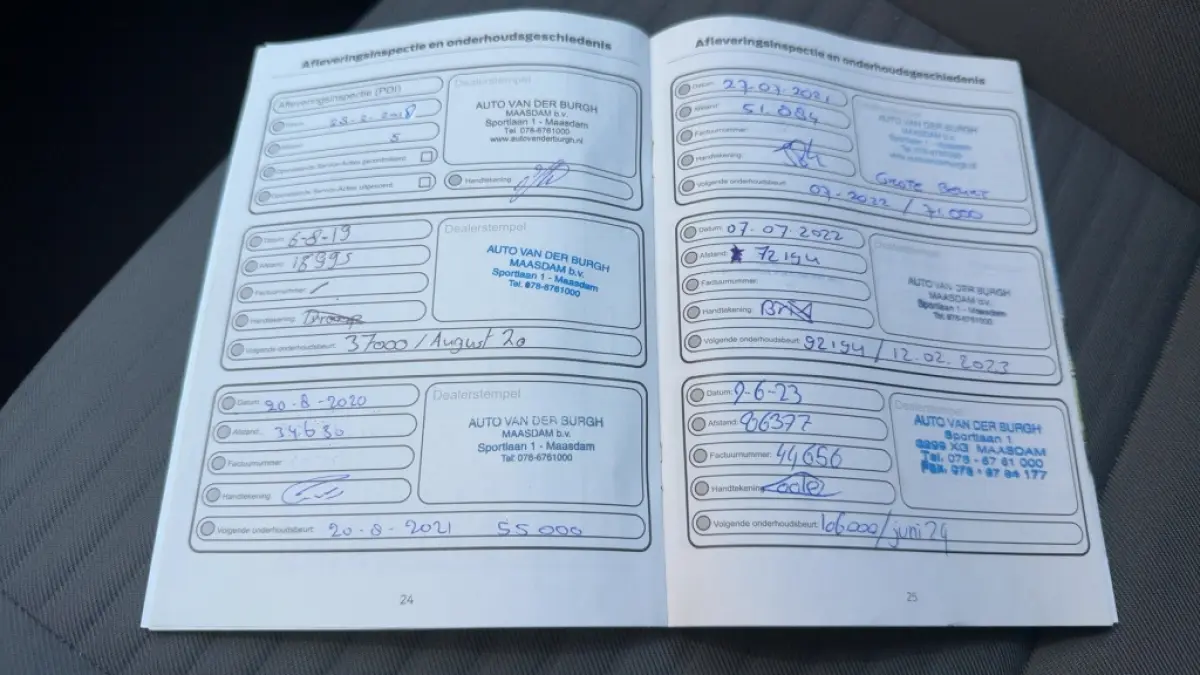 Afleveringsinspectie en onderhoudsgeschiedenis
Afleveringsinspectie (PDI)
Datum: 23-2-2018
Afstand: 5
Openstaande Service-Acties gecontroleerd:
Openstaande Service-Acties uitgevoerd:
Dealerstempel
AUTO VAN DER BURGH
MAASDAM b.v.
Sportlaan 1 - Maasdam
Tel. 078-6761000
www.autovanderburgh.nl
Handtekening:
Datum: 6-8-19
Afstand: 18995
Factuurnummer: /
Handtekening:
Volgende onderhoudsbeurt: 37000 / August 20
Dealerstempel
AUTO VAN DER BURGH
MAASDAM b.v.
Sportlaan 1 - Maasdam
Tel: 078-6761000
Datum: 20-8-2020
Afstand: 34630
Factuurnummer:
Handtekening:
Volgende onderhoudsbeurt: 20-8-2021 55000
Dealerstempel
AUTO VAN DER BURGH
MAASDAM b.v.
Sportlaan 1 - Maasdam
Tel: 078-6761000
24
Afleveringsinspectie en onderhoudsgeschiedenis
Datum: 27.07.2021
Afstand: 51.084
Factuurnummer:
Handtekening:
Volgende onderhoudsbeurt: 07.2022 / 71.000
Dealerstempel
AUTO VAN DER BURGH
MAASDAM b.v.
Sportlaan 1 - Maasdam
Tel. 078-6761000
www.autovanderburgh.nl
GROTE BEURT
Datum: 07.07.2022
Afstand: 72194
Factuurnummer:
Handtekening:
Volgende onderhoudsbeurt: 92194 / 12.02.2023
Dealerstempel
AUTO VAN DER BURGH
MAASDAM b.v.
Sportlaan 1 - Maasdam
Tel: 078-6761000
Datum: 9-6-23
Afstand: 86377
Factuurnummer: 44656
Handtekening:
Volgende onderhoudsbeurt: 106000/juni 24
Dealerstempel
AUTO VAN DER BURGH
Sportlaan 1
3299 XG MAASDAM
Tel. 078 - 67 61 000
Fax. 078 - 67 64 177
25